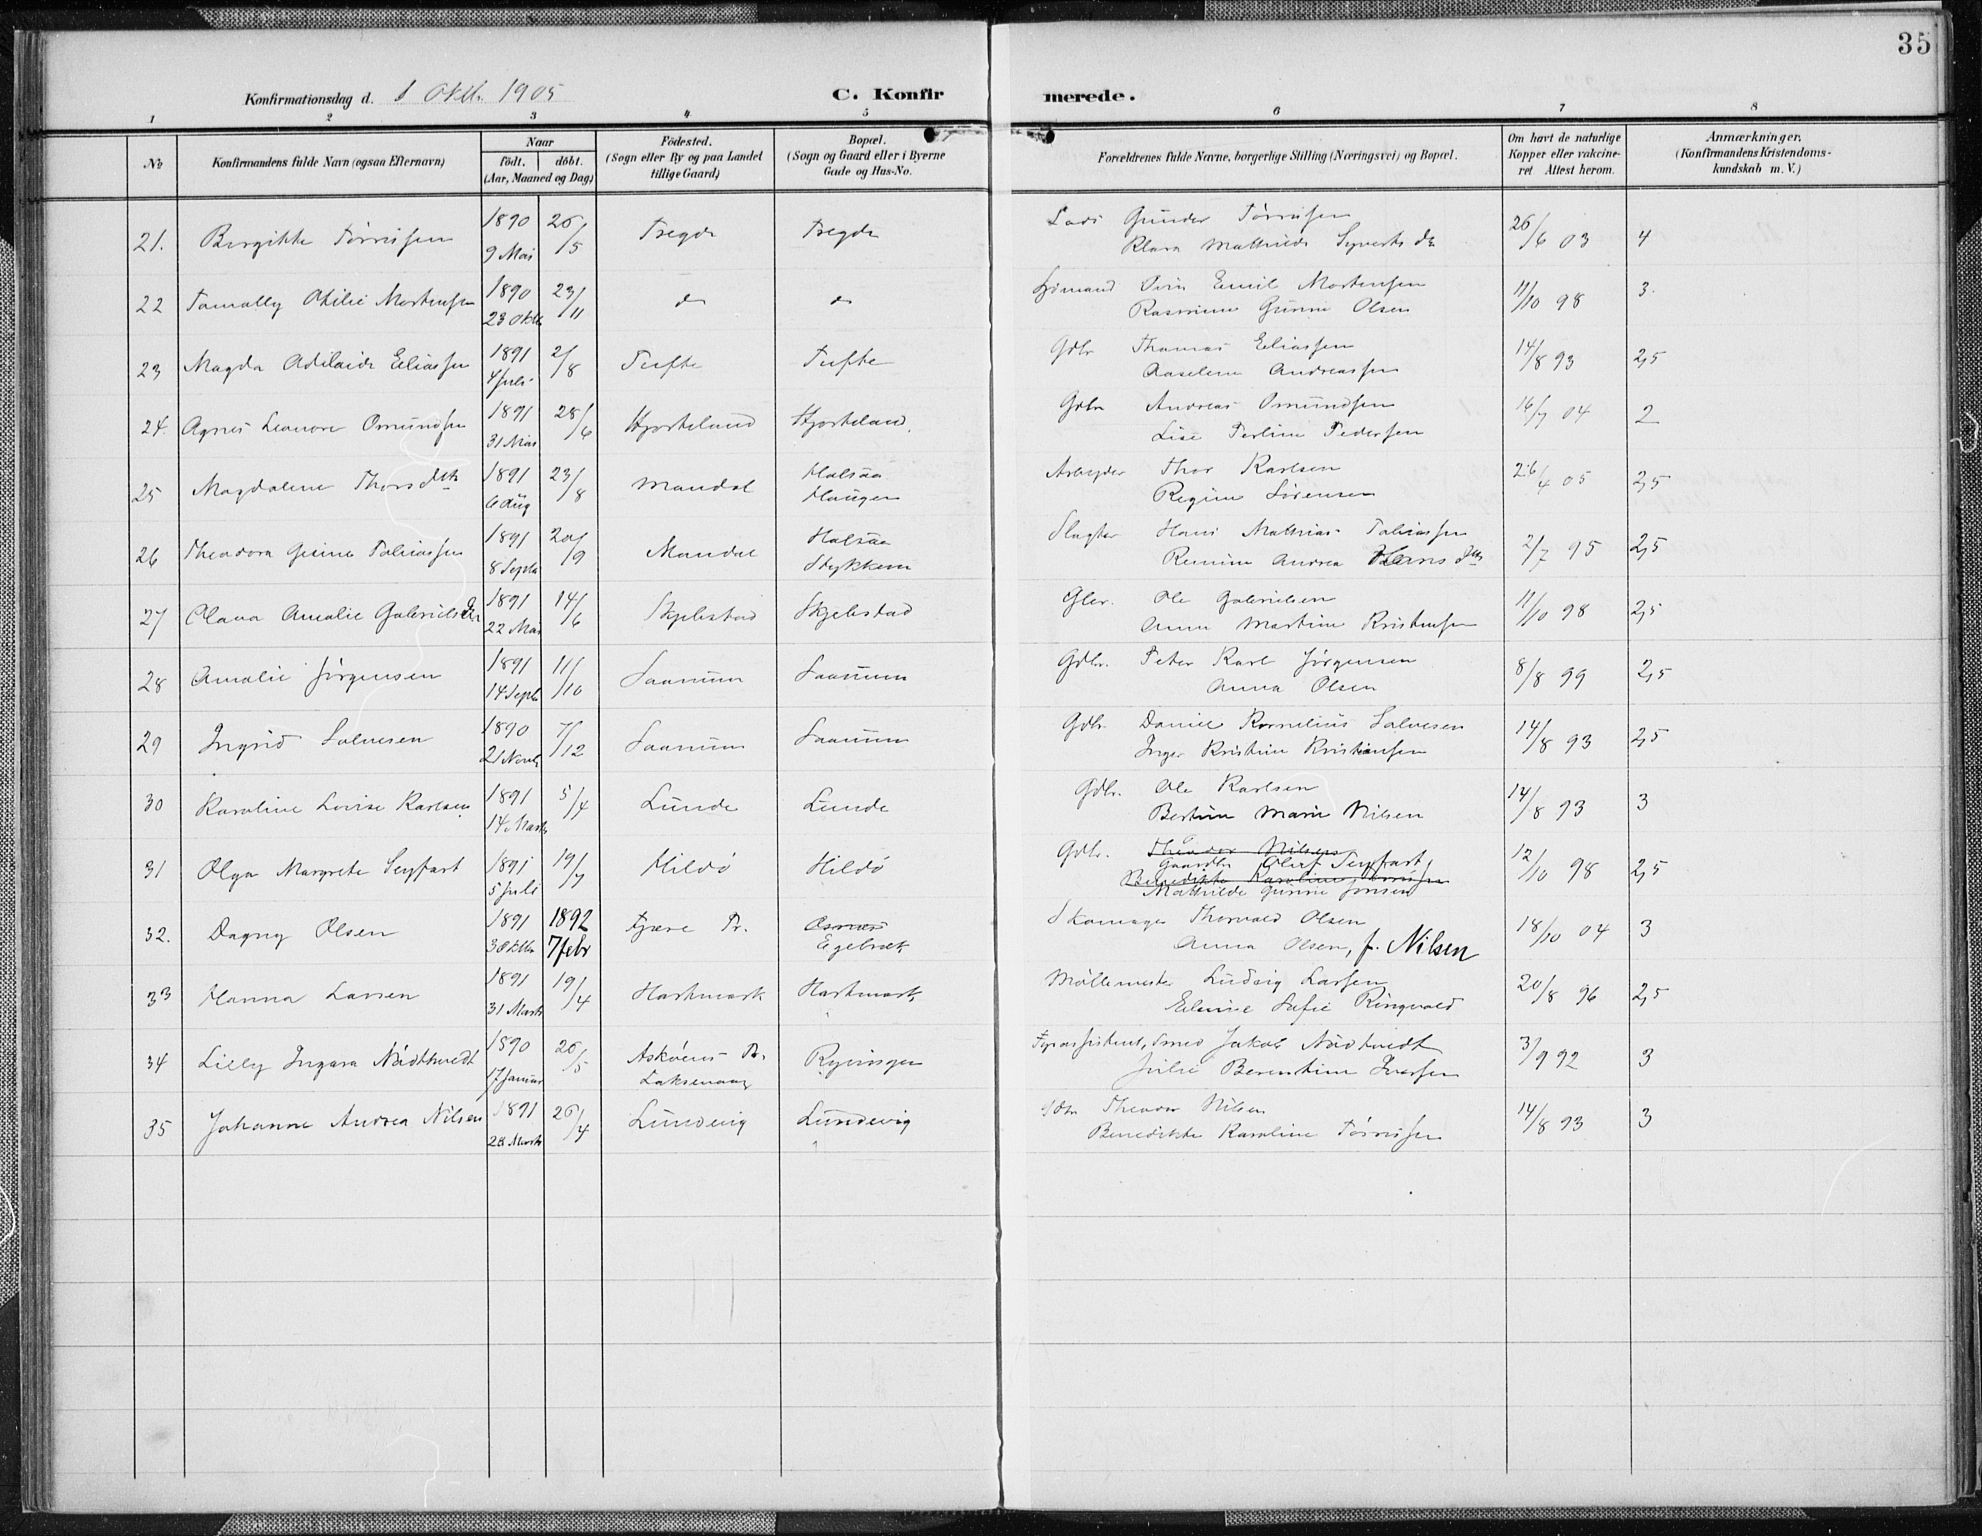 35
Konfirmationsdag d. 1 Oktb. 1905 C. Konfir merede.
1 2 3 4 5 6 7 8
No Konfirmandens fulde Navn (ogsaa Efternavn) Naar födt. döbt. (Aar, Maaned og Dag) Födested. (Sogn eller By og paa Landet tillige Gaard) Bopæl. (Sogn og Gaard eller i Byerne Gade og Hus-No. Forældrenes fulde Navne, borgerlige Stilling (Næringsvei) og Bopæl. Om havt de naturlige Kopper eller vakcineret Attest herom. Anmærkninger. (Konfirmandens Kristendomskundskab m. V.)
21. Birgitte Tørrisen 1890 9 Mai 26/5 Tregde Tregde Lods Gunder Tørrisen
Klara Mathilde Syverts dr 26/6 03 4
22 Otilie Mortensen 1890 23 Oktb 23/11 do do Emil Mortensen
Rasmine Gurine Olsen 11/10 98 3.
23 Magda Adelaide Eliassen 1891 4 juli 2/8 Tufte Tufte Gdbr Thomas Eliassen
Aaselene Andreassen 14/8 93 2,5
24. Agnes Leonore Omundsen 1891 31 Mai 28/6 Hjorteland Hjorteland Gdbr Andreas Omundsen
Lise Terline Pedersen 16/7 04 2
25 Magdalene Thorsdtr 1891 6 Aug 23/8 Mandal Halsaa
Haugen Arbeyder Thor Karlsen
Regine Sørensen 26/4 05 2,5
26 Theodora Gurine Tobiassen 1891 8 Septb 20/9 Mandal Halsaa
Stykkene Slagter Hans Mathias Tobiassen
Remine Andrea Hansdtr 2/7 95 2,5
27 Olava Amalie Gabrielsdtr 1891 22 Mai 14/6 Skjebstad Skjebstad Gbr. Ole Gabrielsen
Anna Martine Kristensen 11/10 98 2,5
28 Amalie Jørgensen 1891 14 Septb 11/10 Saanum Saanum Gdbr. Peter Karl Jørgensen
Anna Olsen 8/8 99 2,5
29 Ingrid Salvesen 1890 21 Novb 7/12 Saanum Saanum Gdbr. Daniel Kornelius Salvesen
Inger Kristine Kristiansen 14/8 93 2,5
30 Karoline Lovise Karlsen 1891 14. Marts 5/4 Lunde Lunde Gdbr. Ole Karlsen
Bertine Marie Nilsen 14/8 93 3
31 Olga Margrete Seyfart 1891 5 juli 19/7 Hildö Hildö Gdbr. Theodor Nilsen
Gaardbr Oluf Seyfart,
Benedikte Karoline Tørrisen
Mathilde Gurine Jonsen 12/10 98 2,5
32. Dagny Olsen 1891 3 Oktb 1892 7 febr Fjære Pr. Osnæs
Egebræk Skomager Thorvald Olsen
Anna Olsen, f. Nilsen 18/10 04 3
33 Hanna Larsen 1891 31 Marts 19/4 Hartmark Hartmark Møllemester Ludvig Larsen
Elenine Sofie Ringvold 20/8 96 2,5
34 Lilly Ingara Nödtvedt 1890 17 Januar 26/5 Askøens Pr.
Laksevaag Ryvingen Fyrassistent, Smed Jakob Nödtvedt
Julie Berentine Iversen 3/9 92 3
35 Johanne Andrea Nilsen 1891 28 Marts 26/4 Lundevig Lundevig Gdbr Theodor Nilsen
Benedikte Karoline Tørrisen 14/8 93 3